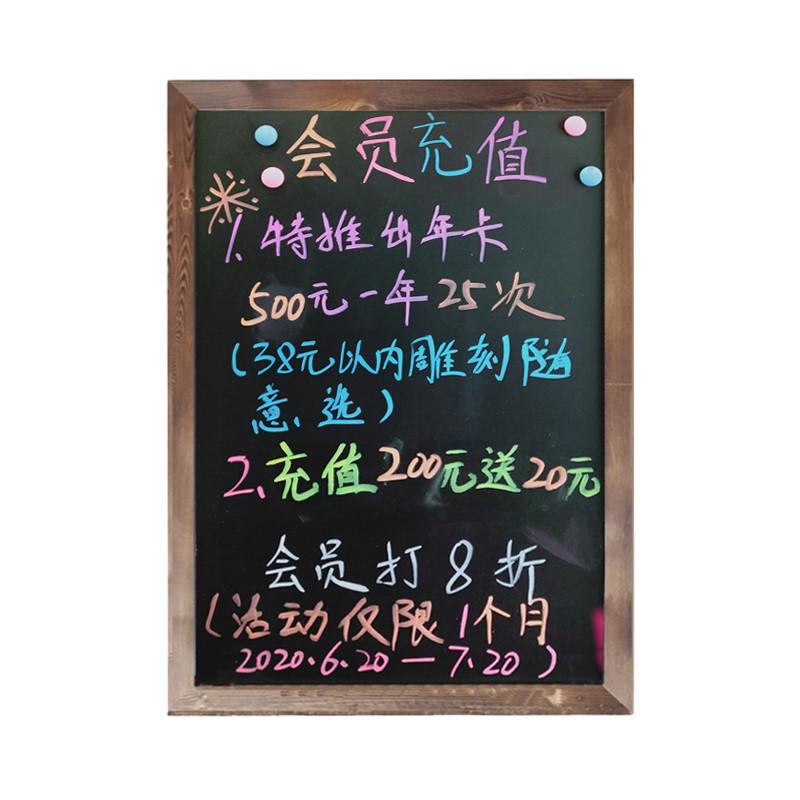 会员充值
1、特推出年卡
500元一年25次
(38元以内雕刻随
意、选)
2、充值200元送20元
会员打8折
(活动仅限1个月
2020.6.20—7.20)